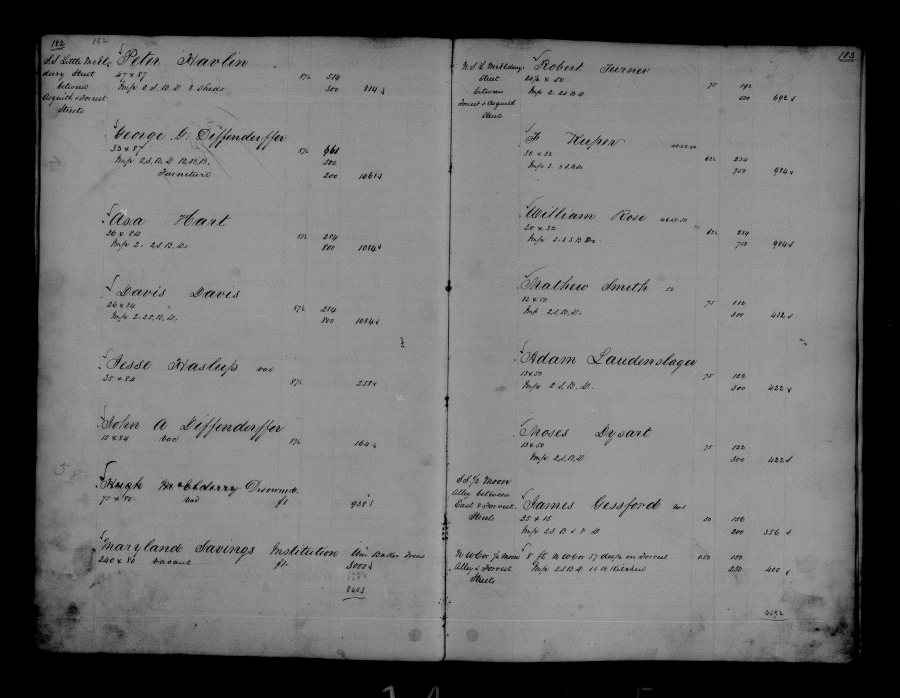 182 182
S.S. Little McEl- Peter Havlin
derry Street 47 x 87 87½ 514
between Imp 2 S. B. D & Sheds 300 814
Asquith & Forrest
Streets
George G. Diffenderffer
33 x 87 87½ 361
Imp 2 S. B. D 500
Furniture 200 1061
Asa Hart
26 x 84 87½ 284
Imp 2. 2 S. B. Ds 800 1084
Davis Davis
26 x 84 87½ 284
Imp 2. 2 S. B. D. 800 1084
Jesse Haslup vac
35 x 84 87½ 258
John A Diffenderffer
15 x 84 vac 87½ 164
58
Hugh McElderry
75 x 80 vac ft 938
Maryland Savings Institution
240 x 80 vacant ft 3000
8403
183
N.S. L McElderry Robert Turner
Street 20½ x 50 75 192
between Imp 2. 2 S B D 500 692
Forrest & Asquith
Streets
F Kuper
30 x 32 234
750 984
William Rose
30 x 32 234
750 984
Mathew Smith
12 x 50 75 112
Imp 2 S. B. D. 300 412
Adam Laudenslager
13 x 50 75 122
Imp 2 S. B. D. 300 422
Moses Dysart
13 x 50 75 122
Imp 2 S. B. D 300 422
S.S. ½ Moon
Alley between
East & Forrest James Gessford
Streets 25 x 15 50 156
Imp 2 S B & F D 200 356
N W Cor ½ Moon 8 ft N W Cor 37 deep on Forrest 150 150
Alley & Forrest Imp 2 S B D 1 S B Kitchen 250 400
Streets
4692